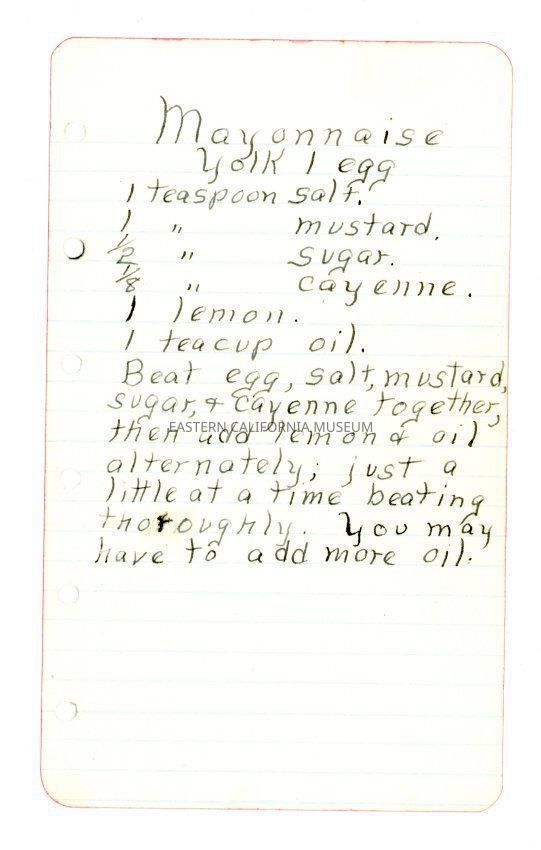 Mayonnaise
Yolk 1 egg
1 teaspoon salt.
1 " mustard.
1/2 " sugar.
1/8 " cayenne.
1 lemon.
1 teacup oil.
Beat egg, salt, mustard,
sugar, & cayenne together,
then add lemon & oil
EASTERN CALIFORNIA MUSEUM
alternately; just a
little at a time beating
thoroughly. You may
have to add more oil.